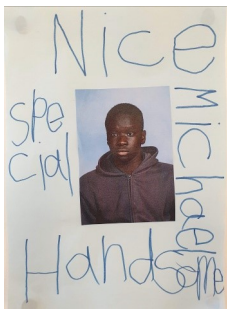 Nice
spe
cial
Michael
Handsome